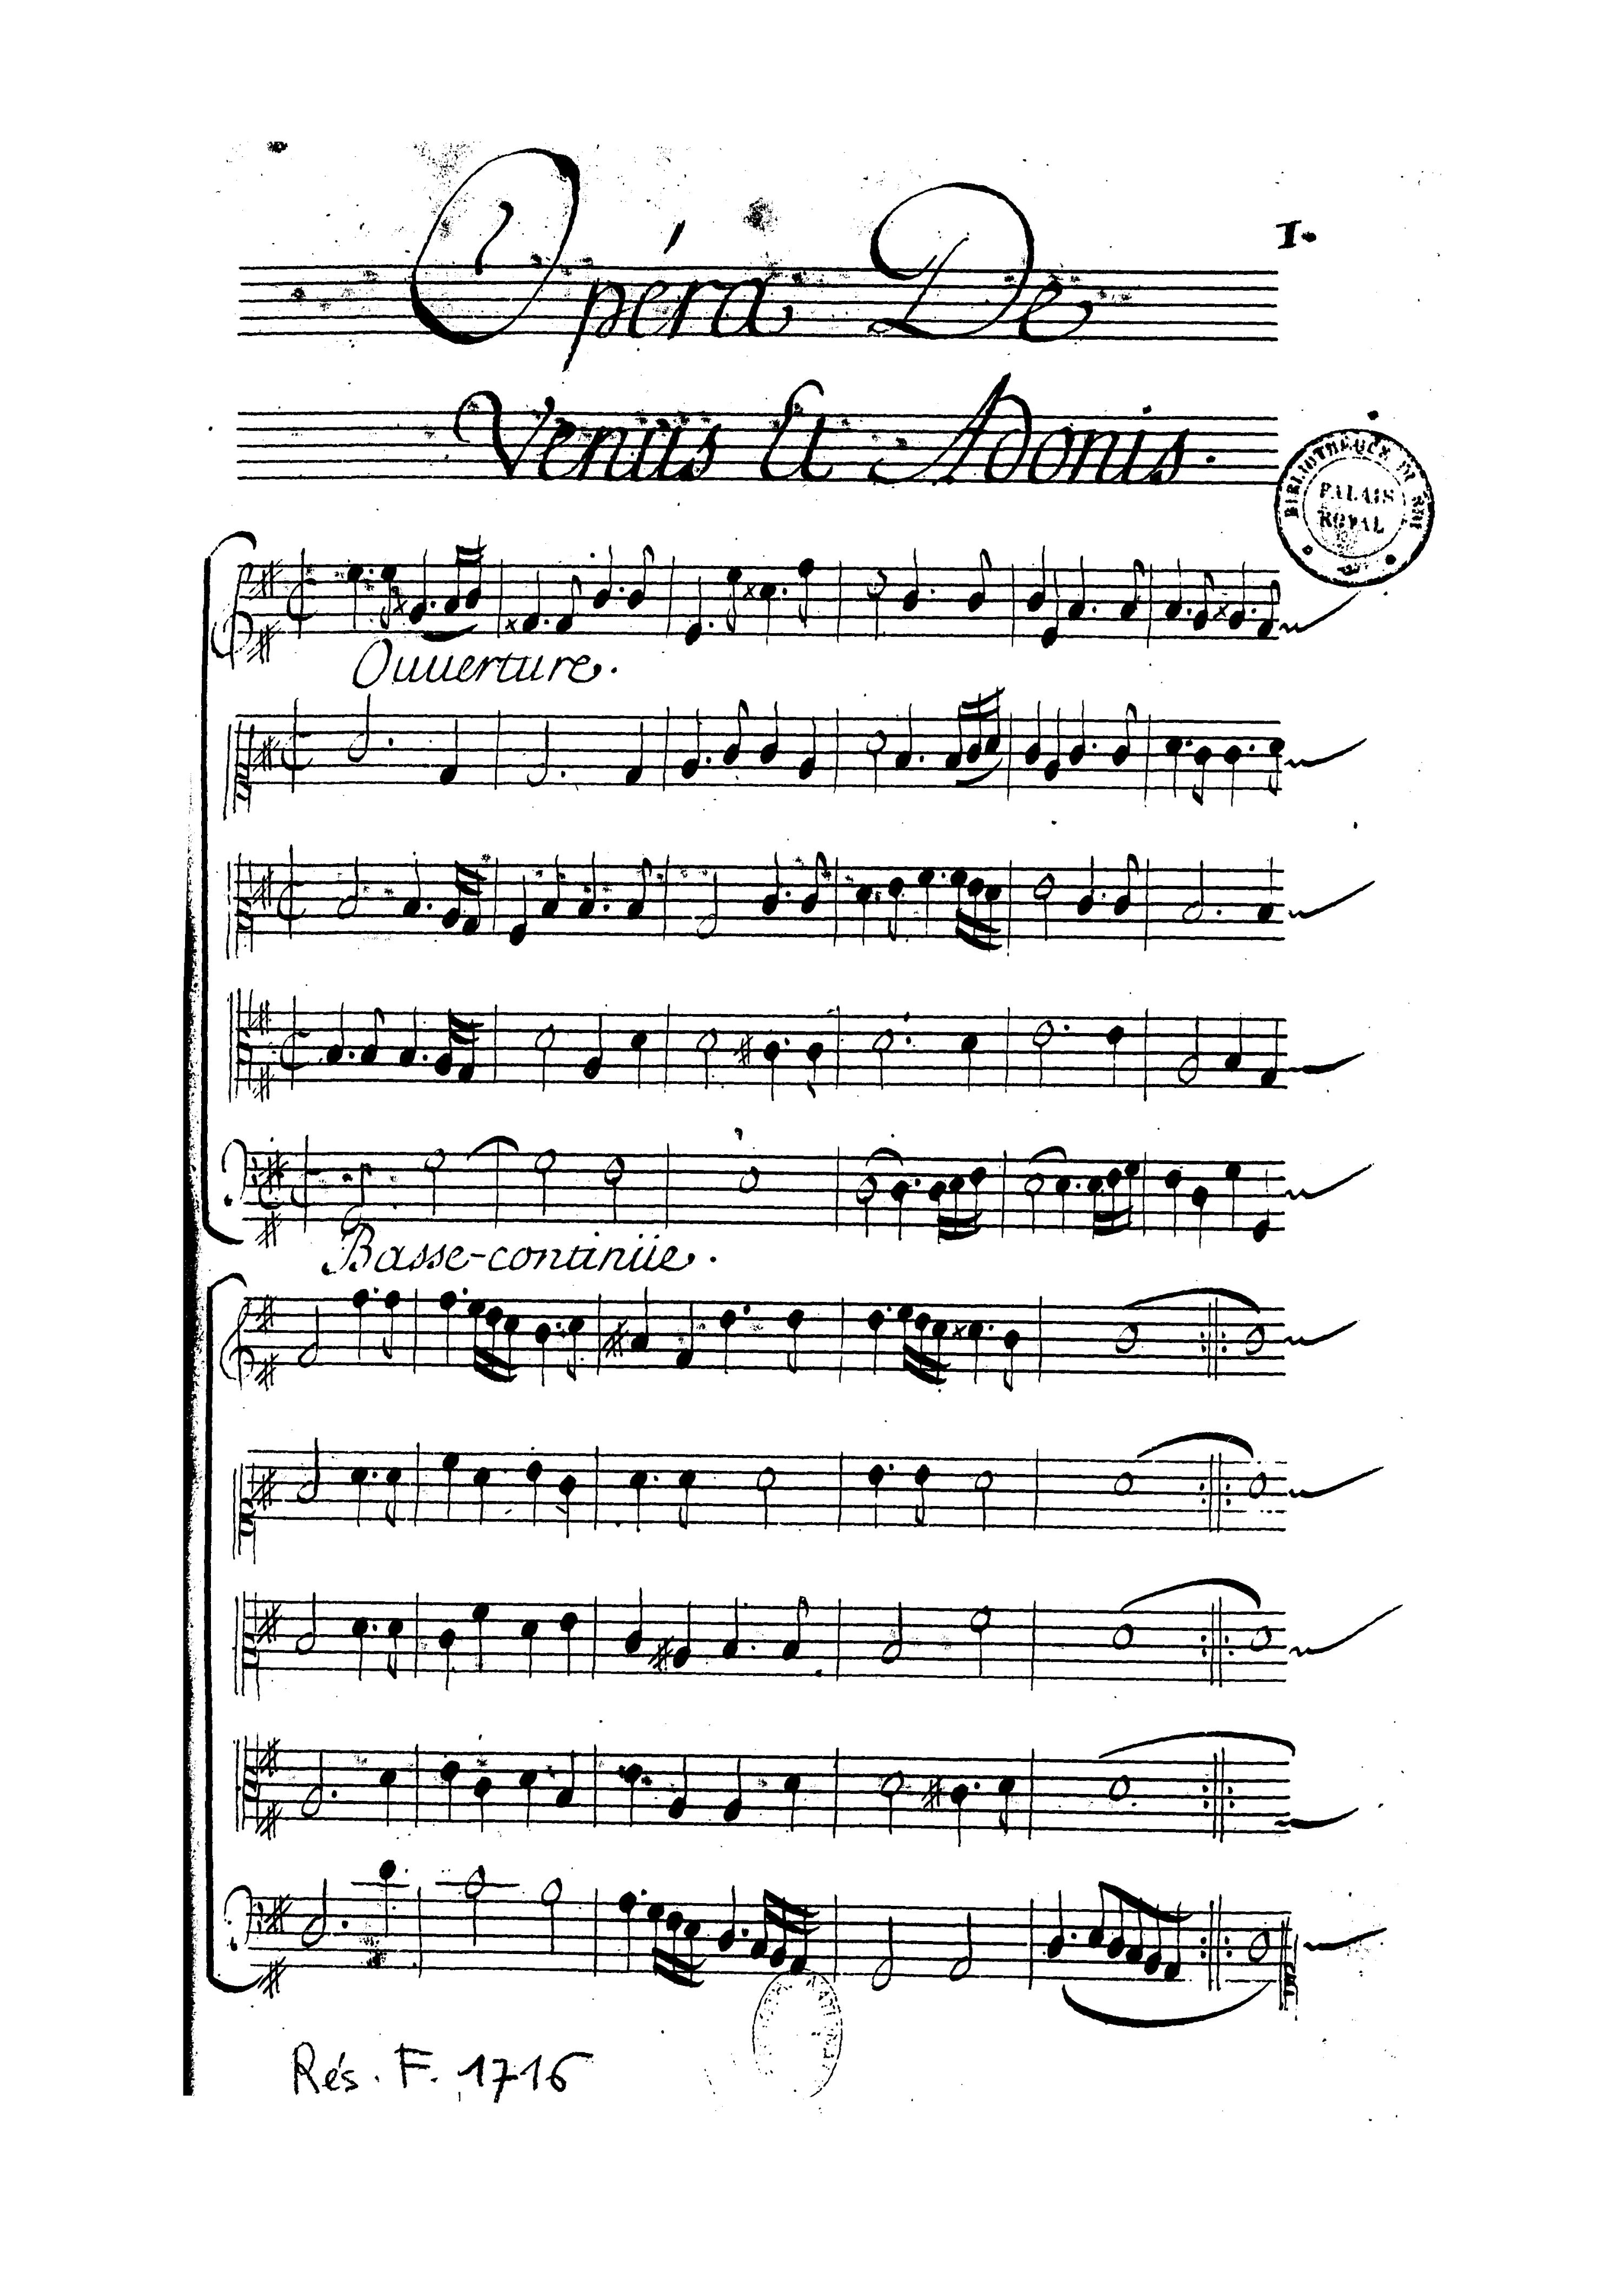 1.
Opéra De
Venus Et Adonis.
BIBLIOTHEQUE DU ROI
PALAIS
ROYAL
Ouuerture.
Basse-continüe.
Rés. F. 1716